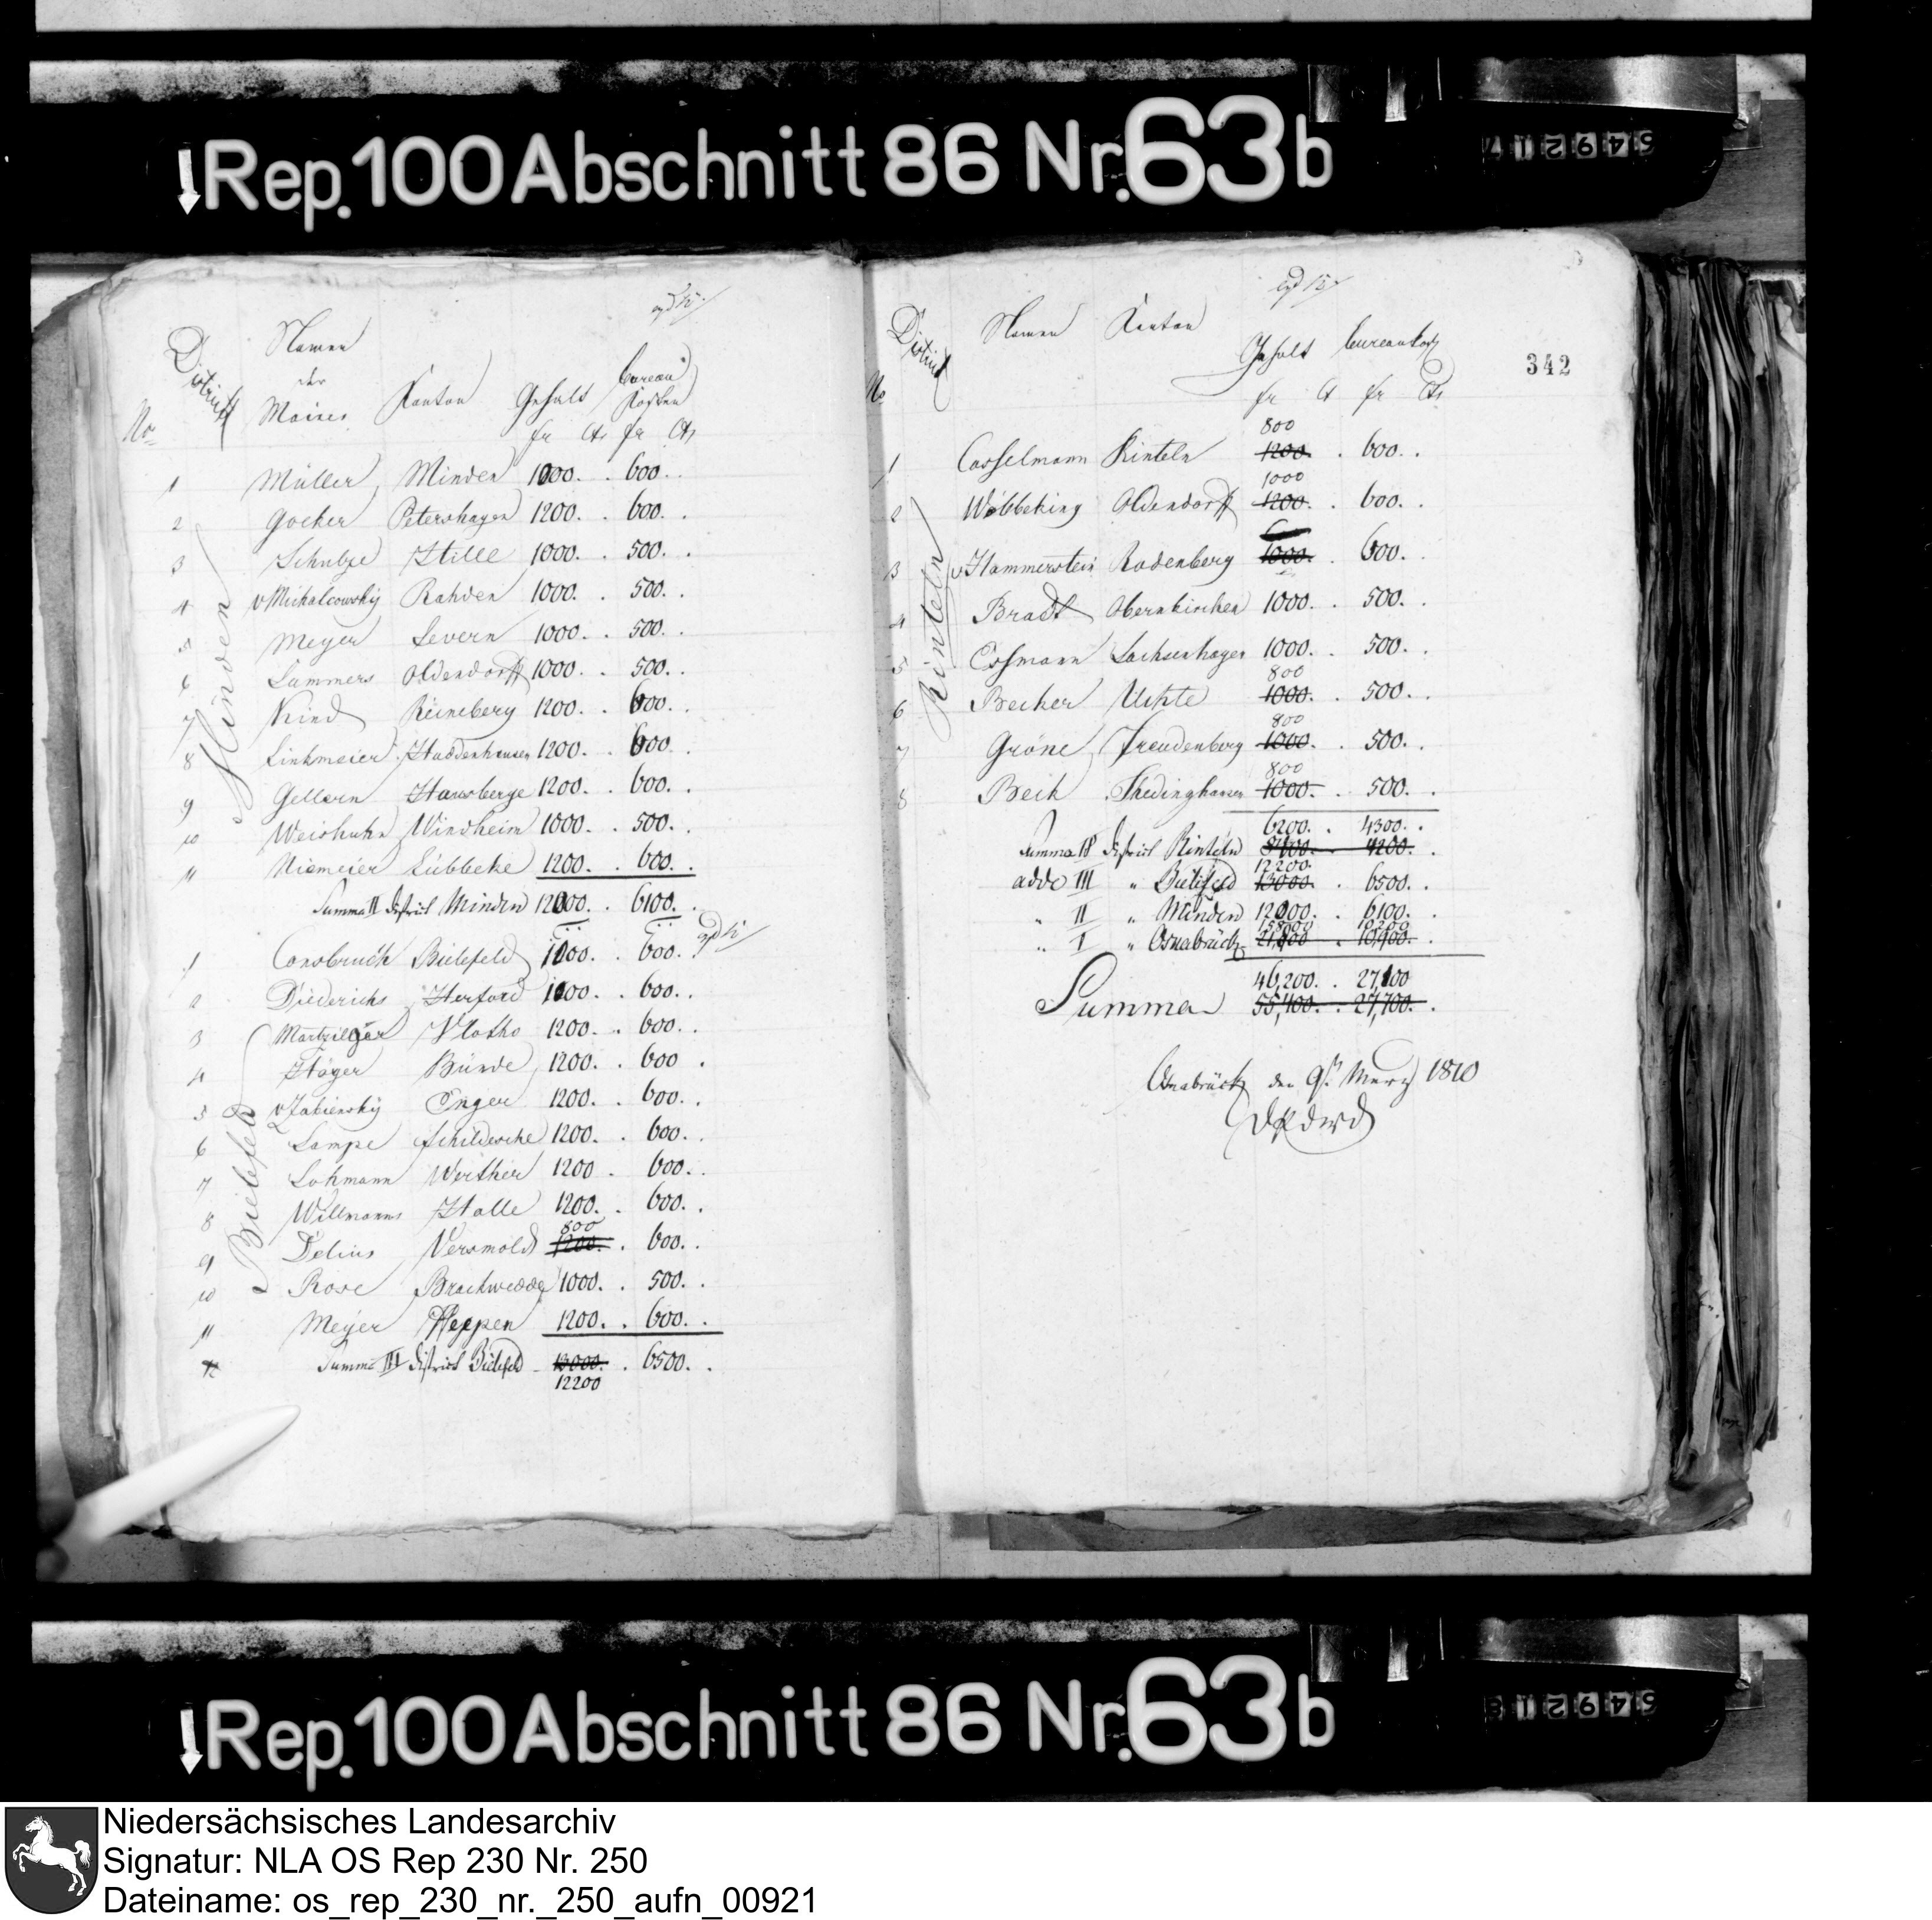 Rep. 100 Abschnitt 86 Nr. 63b
54921
No District Namen der Maires Kanton Gehalt bureau Kosten
fr Cts fr Cts
Minden
1 Müller Minden 1000. . 600. .
2 Gocker Petershagen 1200. . 600. .
3 Schultze Hille 1000. . 500. .
4 v Michalcowsky Rahden 1000. . 500. .
5 Meyer Levern 1000. . 500. .
6 Lammers Oldendorff 1000. . 500. .
7 Kind Reineberg 1200. . 600. .
8 Linkmeier Haddenhausen 1200. . 600. .
9 Gellern Hausberge 1200. . 600. .
10 Weishuhn Windheim 1000. . 500. .
11 Niemeier Lübbeke 1200. . 600. .
Summa II District Minden 12000. . 6100. .
Bielefeld
1 Consbruch Bielefeld 1000. . 600. .
2 Diederichs Herford 1000. . 600. .
3 Vlotho 1200. . 600. .
4 Höger Bünde 1200. . 600 .
5 Enger 1200. . 600. .
6 Lampe Schildesche 1200. . 600. .
7 Lohmann Werther 1200 . 600. .
8 Willmanns Halle 1200. . 600. .
800
9 Delius Versmold 1200. . 600. .
10 Rose Brackwedde 1000. . 500. .
11 Meyer Heppen 1200. . 600. .
Summa III District Bielefeld 13000. . 6500. .
12200
342
No District Namen Kanton Gehalt bureaukost
fr Ct fr Cts
Rinteln
800
1 Casselmann Rinteln 1200. . 600. .
1000
2 Wöbbeking Oldendorff 1200. . 600. .
3 v Hammerstein Rodenberg 1000. . 600. .
4 Bradt Obernkirchen 1000. . 500. .
5 Sachsenhagen 1000. . 500. .
800
6 Becker Uchte 1000. . 500. .
800
7 Gröne Freudenberg 1000. . 500. .
800
8 Thedinghausen 1000. . 500. .
6200. . 4300. .
Summa District Rinteln 4200. .
12200.
adde III " Bielefeld 13000. . 6500. .
" II " Minden 12000. . 6100. .
15800 10,200
" I " Osnabrück 10,900. .
46,200. . 27,100
Summa 55,400. . 27,700. .
Osnabrück den 9t. Merz 1810
Rep. 100 Abschnitt 86 Nr. 63b
Niedersächsisches Landesarchiv
Signatur: NLA OS Rep 230 Nr. 250
Dateiname: os_rep_230_nr._250_aufn_00921